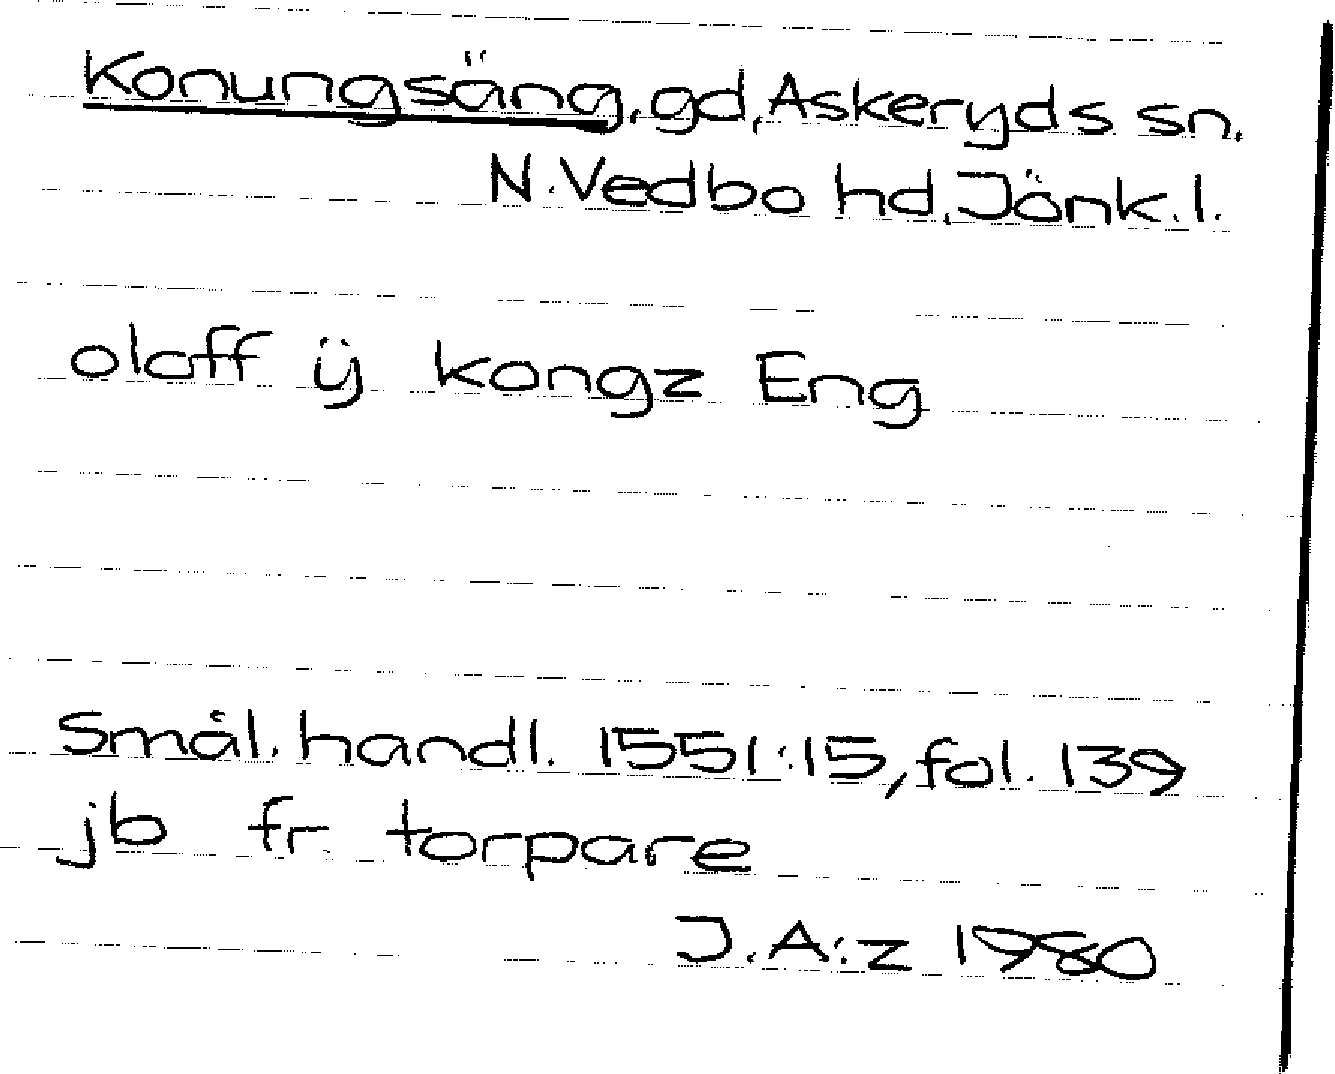 Konungsäng, gd, Askeryds sn.
N. Vedbo hd, Jönk. l.
olaff ÿ kongz Eng
Smål. handl. 1551:15, fol. 139
jb fr. torpare
J. A:z 1980